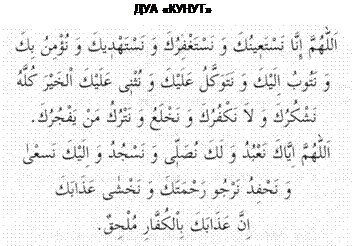 ДУА «КУНУТ»
اَللّٰهُمَّ اِنَّا نَسْتَعِينُكَ وَ نَسْتَغْفِرُكَ وَ نَسْتَهْدِيكَ وَ نُؤْمِنُ بِكَ
وَ نَتُوبُ اِلَيْكَ وَ نَتَوَكَّلُ عَلَيْكَ وَ نُثْنِى عَلَيْكَ الْخَيْرَ كُلَّهُ
نَشْكُرُكَ وَ لاَ نَكْفُرُكَ وَ نَخْلَعُ وَ نَتْرُكُ مَنْ يَفْجُرُكَ.
اَللّٰهُمَّ اِيَّاكَ نَعْبُدُ وَ لَكَ نُصَلِّى وَ نَسْجُدُ وَ اِلَيْكَ نَسْعٰى
وَ نَحْفِدُ نَرْجُو رَحْمَتَكَ وَ نَخْشٰى عَذَابَكَ
اِنَّ عَذَابَكَ بِالْكُفَّارِ مُلْحِقٌ.